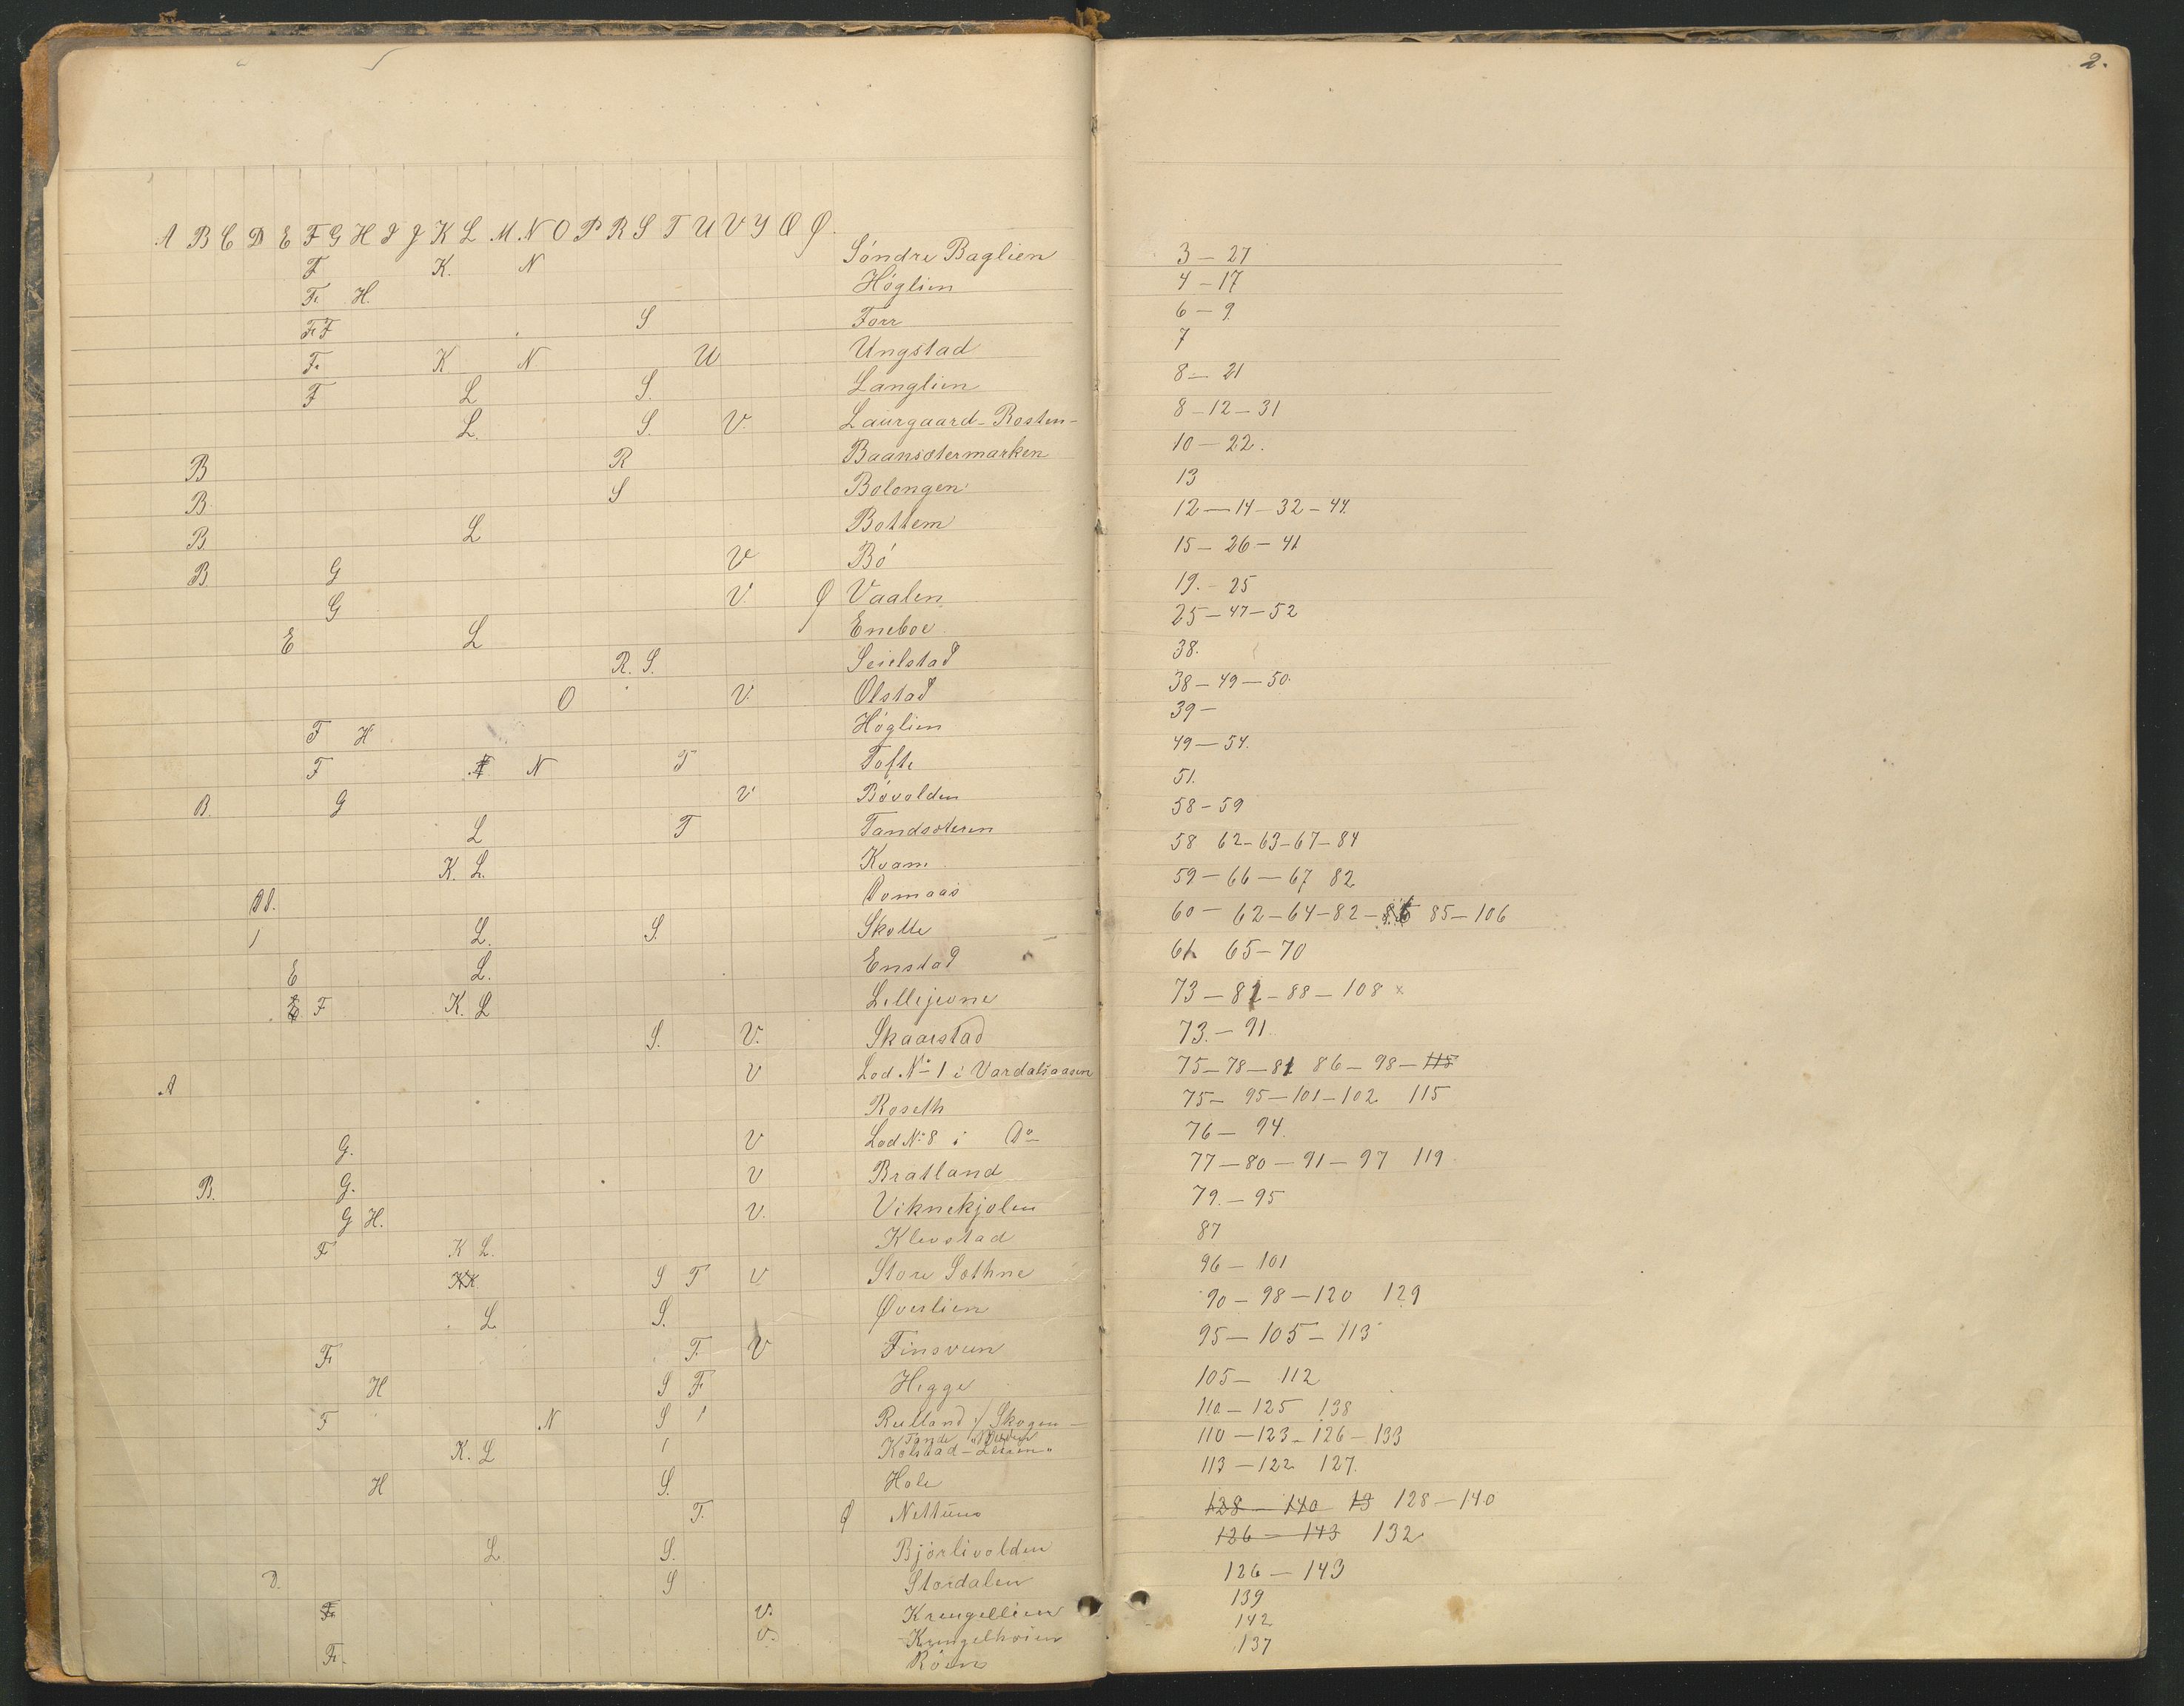 2.
A B C D E F G H I J K L M N O P R S T U V Y Æ Ø.
F K. N Söndre Baglien 3 — 27
F. H. Höglien 4 — 17
F. F S Forr 6 — 9.
F. K N. U Ungstad 7
F L S. Langlien 8 — 21
L. S. V. Laurgaard - Rosten - 8 - 12 - 31
B R Baansætermarken 10 — 22.
B. S Bolongen 13
B. L Bottem 12 — 14 - 32 - 44.
B. G V Bö 15 - 26 - 41
G V. Ø Vaalen 19. - 25
E L Eneboe 25 - 47 - 52
R. S. Seielstad 38.
O V. Olstad 38 - 49 - 50.
F H Höglien 39 -
F N T Tofte 49 - 54.
B. G V Bövolden 51.
L T Tandsæteren 58 - 59
K. L. Kvam 58 62 - 63 - 67 - 84
D. Domaas 59 - 66 - 67 82
L. S. Skotte 60 - 62 - 64 - 82 - 85 - 106
E L. Enstad 61 65 - 70
E F K. L Lillejevne 73 - 81 - 88 - 108 x
S. V. Skaarstad 73. - 91.
A V Lod No 1 i Vardalsaasen 75 - 78 - 81 86 - 98 - 115
Roseth 75 - 95 - 101 - 102 115
G. V Lod No 8 i Do 76 - 94.
B. G. V Bratland 77 - 80 - 91 - 97 119
G H. V. Viknekjølen 79. - 95
F K L. Klevstad 87
K S T V Store Sothne 96 - 101
L S. Øverlien 90 - 98 - 120 129
F. T. V Finsveen 95 - 105 - 113
H S F Hegge 105 - 112
F N S 1 Rulland Skogen - 110 - 125 138
Tande
K. L 1 Kolstad - 110 - 123 - 126 - 133
H S. Hole 113 - 122 127.
T. Ø Nettum 128 - 140 13 128 - 140
L S. Bjørlivolden 126 - 143 132
D. S Stordalen 126 - 143
F. V. Krengellien 139
V. Kringelhøien 142
F. Röen 137